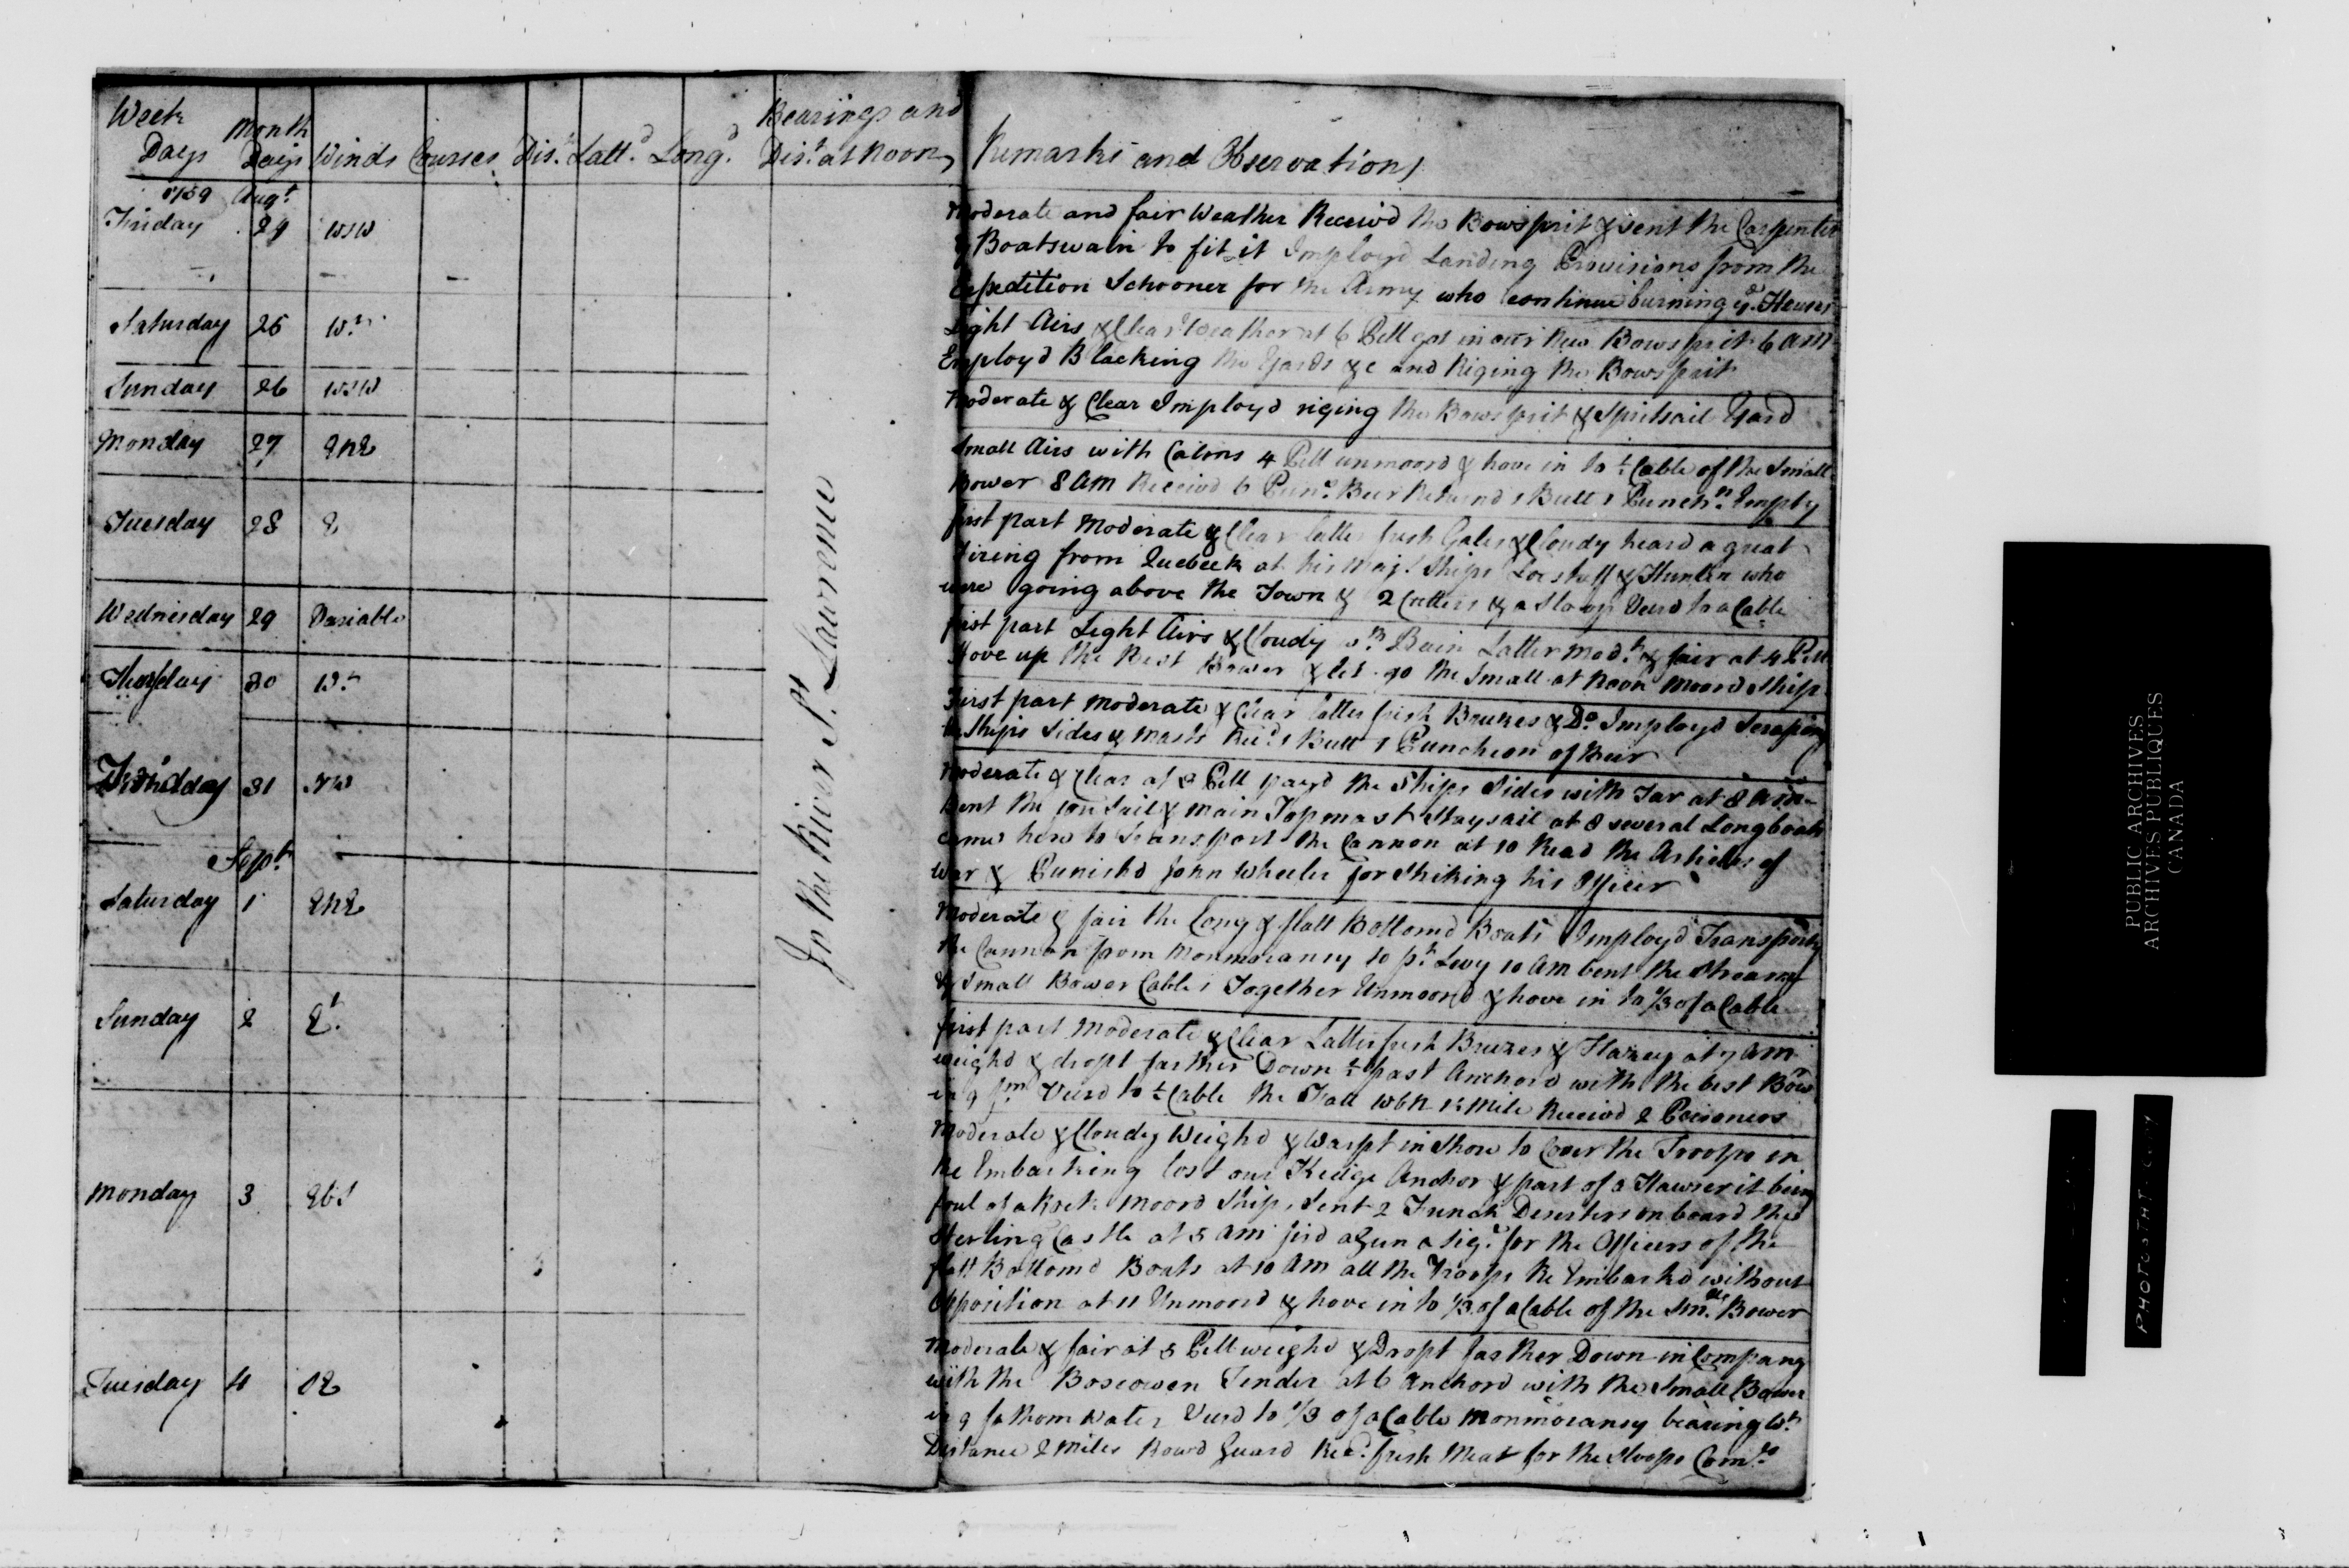 Week Days Month Days Winds Courses Dis.t Latt.d Long.d Bearings and Dis.t at Noon Remarks and Observations
1759 Aug.t
Friday 24 WSW
Moderate and fair Weather Receivd the Bowsprit & sent the Carpenter
& Boatswain to fit it Imployd Landing Provisions from the
Expedition Schooner for the Army who continue burning y.e Houses
Saturday 25 W.t
Light Airs & Clear Weather at 6 PM got in our New Bowsprit 6 AM
Employd Blacking the Yards &c and Riging the Bowsprit
Sunday 26 WSW
Moderate & Clear Imployd riging the Bowsprit & Spritsail Yard
Monday 27 ENE
Small Airs with Calms 4 PM unmoord & hove in to ½ Cable of the Small
Bower 8 AM Receivd 6 Pun.s Beer Returnd 1 Butt 1 Punch.n Empty
Tuesday 28 E
first part Moderate & Clear latter fresh Gales & Cloudy heard a great
firing from Quebeck at his Maj.s Ships Lostaff & Hunter who
were going above the Town & 2 Cutters & a Sloop Veerd to a Cable
Wednesday 29 Variable
first part Light Airs & Cloudy w.th Rain Latter Mod.t & fair at 4 PM
Hove up the Best Bower & let go the Small at Noon Moord Ship
Thursday 30 W.t
First part Moderate & Clear latter fresh Breezes & D.o Imployd Scraping
the Ships Sides & Masts Rec.d 1 Butt 1 Puncheon of Beer
Friday 31 NW
Moderate & Clear at 2 PM payd the Ships Sides with Tar at 8 AM
bent the Main Topmast Staysail at 8 several Longboats
came here to Transport the Cannon at 10 Read the Articles of
War & Punishd John Wheeler for Striking his Officer
Sept.r
Saturday 1 ENE
Moderate & fair the Long & flatt Bottomd Boats Imployd Transporting
the Cannon from Monmorancy to p.t Levy 10 AM bent the Stream
& Small Bower Cables Together Unmoord & hove in to ⅓ of a Cable
Sunday 2 E.t
first part Moderate & Clear Latter fresh Breezes & Hazey at 7 AM
weighd & dropt farther Down ½ past Anchord with the best Bower
in 9 f.m Veerd to ½ Cable the Fall WbN 1½ Mile Receivd 2 Prisoners
Monday 3 EbS
Moderate & Cloudy Weighd & Warpt inshore to Cover the Troops in
Re Embarking lost our Kedge Anchor & part of a Hawser it being
foul of a Rock Moord Ship, Sent 2 French Deserters on board the
Sterling Castle at 5 AM fird a Gun a Sig.l for the Officers of the
flatt Bottomd Boats at 10 AM all the Troops Re Embarkd without
Opposition at 11 Unmoord & hove in to ⅓ of a Cable of the Sm.ll Bower
Tuesday 4 SE
Moderate & fair at 5 PM weighd & Dropt farther Down in Company
with the Boscowen Tender at 6 Anchord with the Small Bower
in 9 fathom Water Veerd to ⅓ of a Cable Monmorancy bearing W.t
Distance 2 Miles Rowd Guard Rec.d fresh Meat for the Sloops Com.y
In the River S.t Lawrence
PUBLIC ARCHIVES
ARCHIVES PUBLIQUES
CANADA